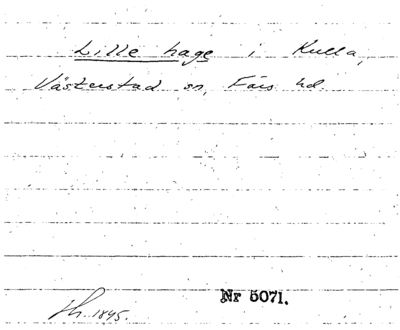 Lille hage i Kulla,
Västerstad sn, Färs hd.
Nr 5071.
1845.